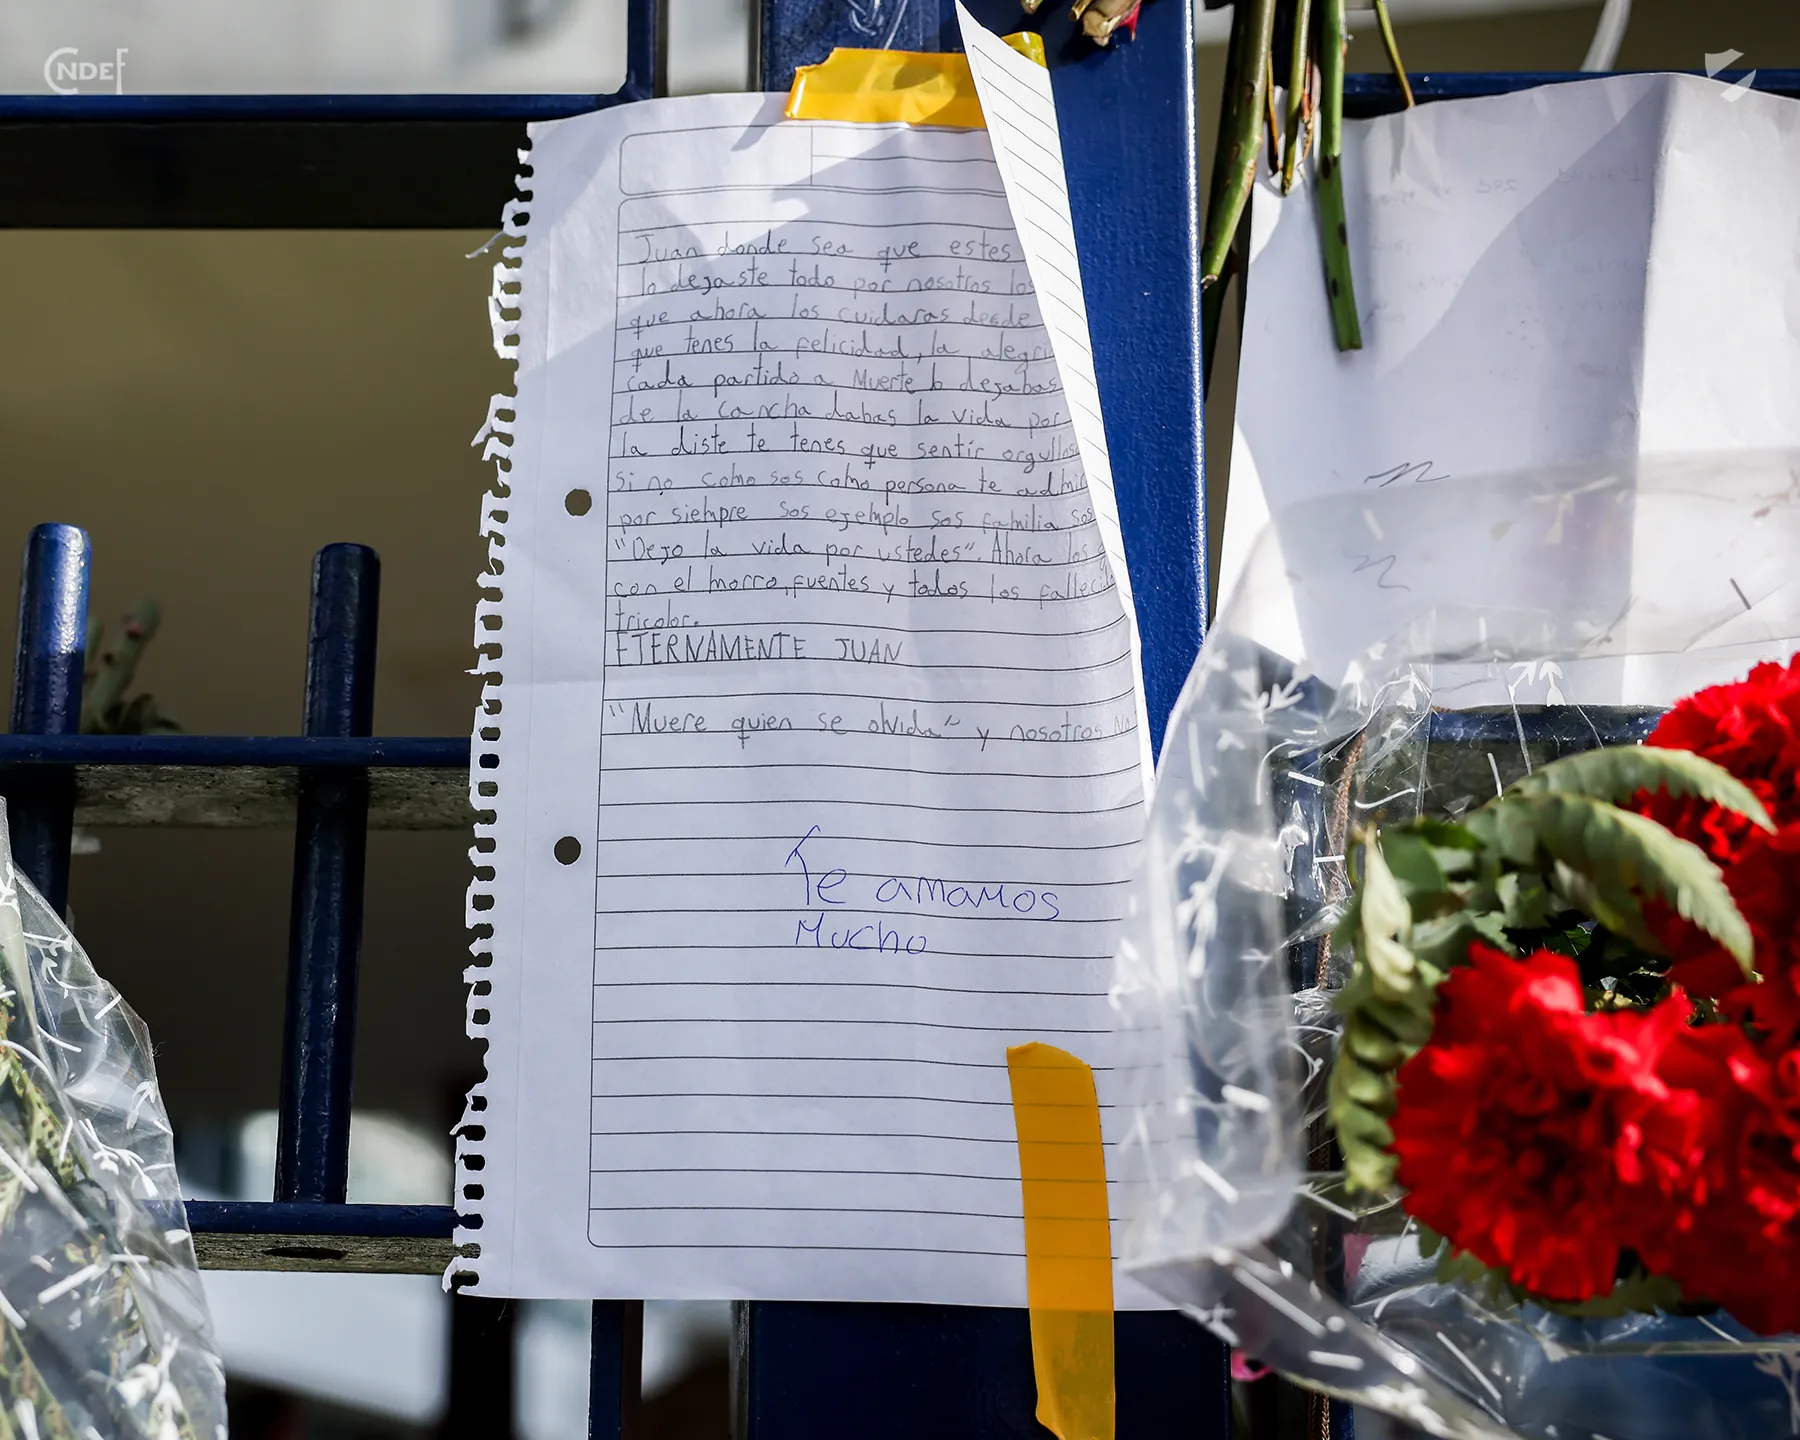 CNDEF
Juan donde sea que estes
lo dejaste todo por nosotros los
que ahora los cuidaras desde
que tenes la felicidad, la alegrí
cada partido a Muerte lo dejabas
de la cancha dabas la vida por
la diste te tenes que sentir orgullos
si no como sos como persona te admir
por siempre sos ejemplo sos familia sos
"Dejo la vida por ustedes". Ahora los
con el morro, fuentes y todos los falleci
tricolor.
ETERNAMENTE JUAN
"Muere quien se olvida" y nosotros No
Te amamos
Mucho